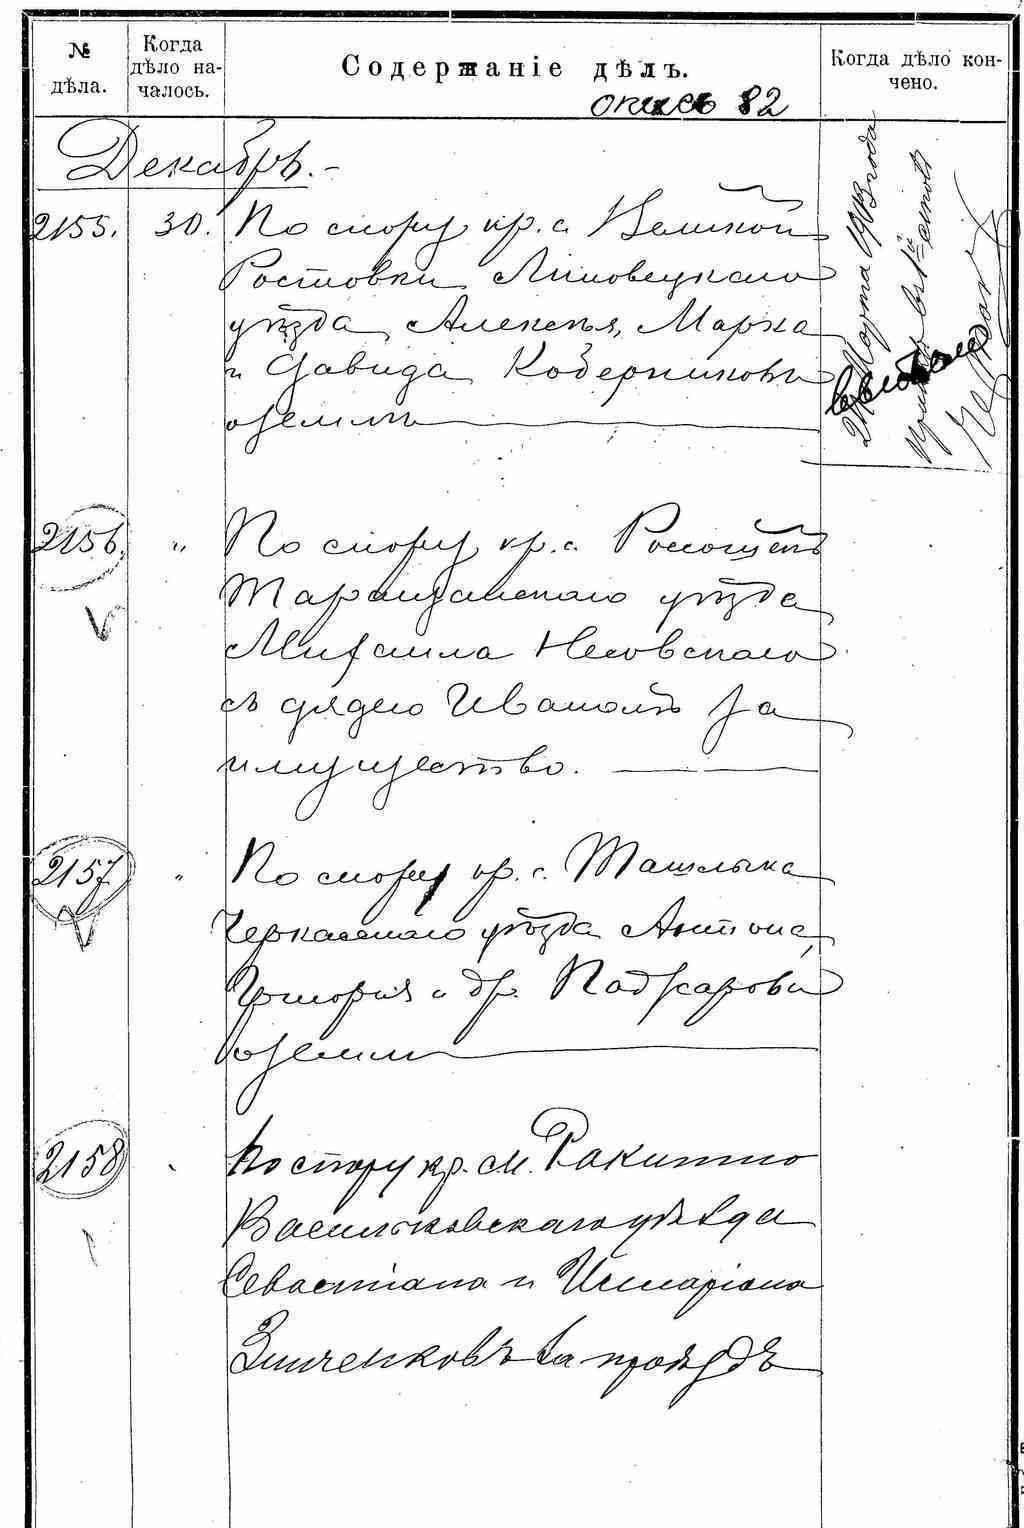 № дѣла.
Когда дѣло началось.
Содержаніе дѣлъ.
Когда дѣло кончено.
опись 82
Декабрь.
2155. 30. По спору кр. с. Великой
Ростовки Липовецкаго
уѣзда, Алексѣя, Марка
и Давида Коберниковъ
о землѣ
27 Марта 1913 года
2156. " По спору кр. с.
Таращанскаго уѣзда
Михаила
съ дядею Иваномъ за
имущество.
2157. " По спору кр. с. Ташлыка
Черкасскаго уѣзда Антона,
Григорія и др.
о земли
2158 " По спору кр. м. Ракитно
Васильковскаго уѣзда
Севастіана и Илларіона
Зинченковъ за проѣздъ